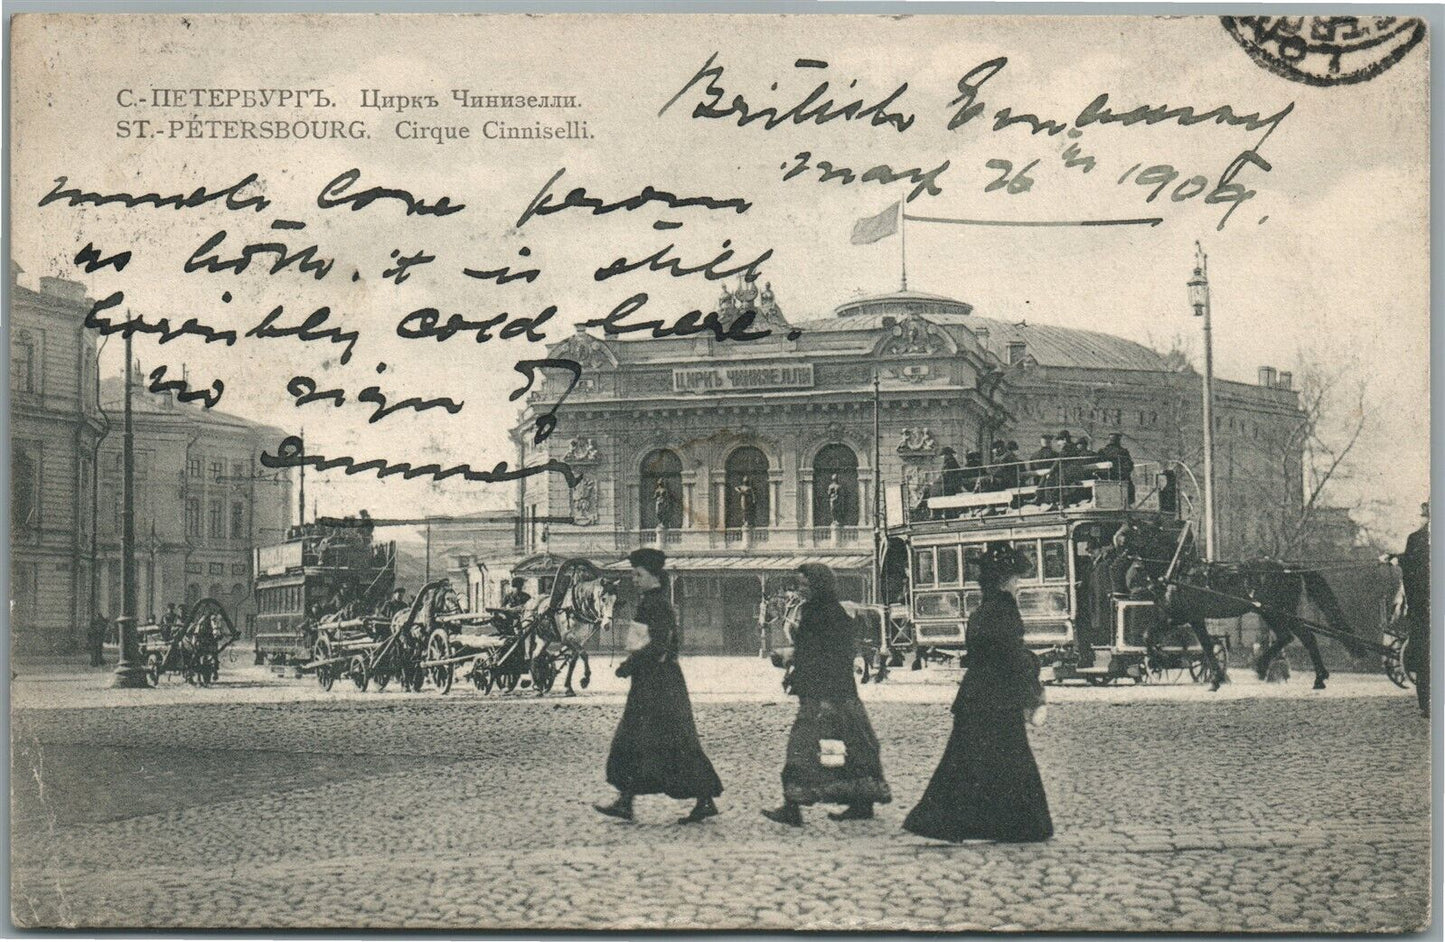 С.-ПЕТЕРБУРГЪ. Циркъ Чинизелли.
ST.-PÉTERSBOURG. Cirque Cinniselli.
British Embassy
May 26th 1909.
much love from
us both. it is still
horribly cold here.
no sign of
summer
ЦИРКЪ ЧИНИЗЕЛЛИ